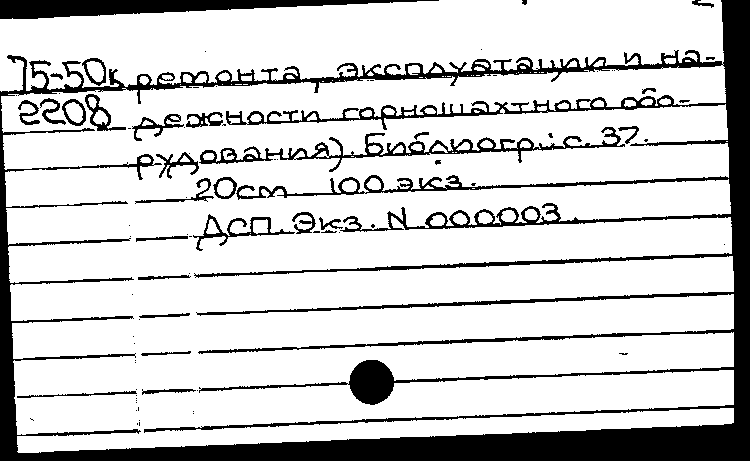 75-50к ремонта, эксплуатации и на-
2208 дежности горношахтного обо-
рудования). Библиогр.: с. 37.
20см 100 экз.
ДСП. Экз. N 000003.